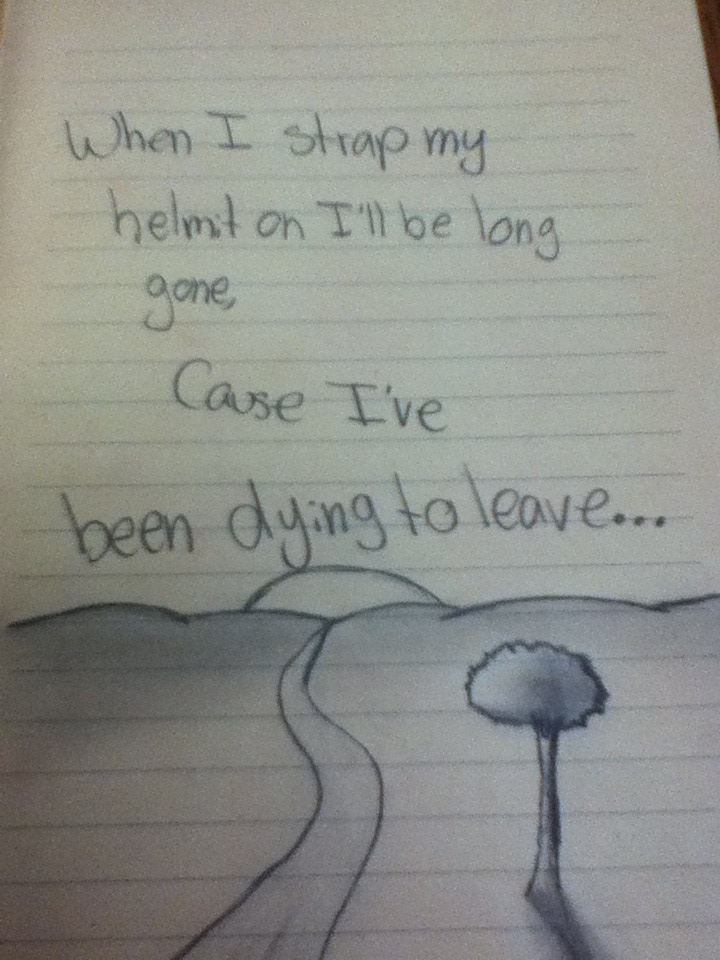 When I strap my
helmit on I'll be long
gone,
Cause I've
been dying to leave...